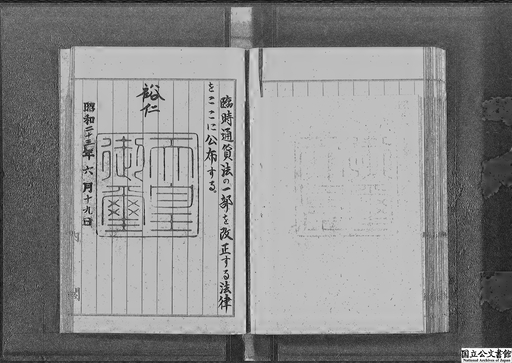 臨時通貨法の一部を改正する法律
をここに公布する
裕仁
天皇
御璽
昭和二十三年六月十九日
内閣
国立公文書館
National Archives of Japan